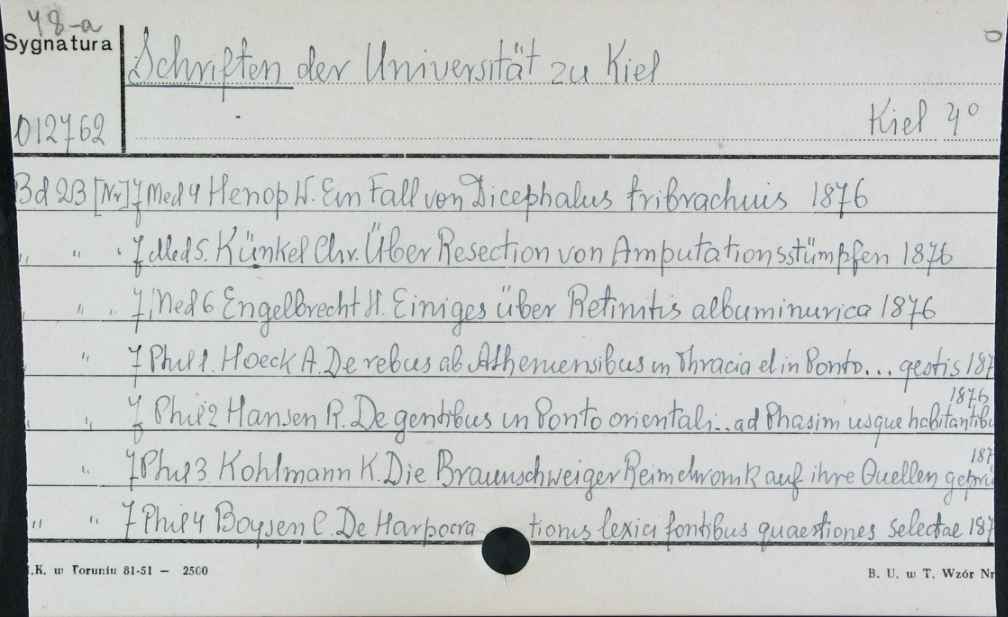 48-a
Sygnatura
Schriften der Universität zu Kiel
012762
Kiel 4°
Bd 23 [Nr] 7 Med 4 Henop W. Ein Fall von Dicephalus tribrachius 1876
" " " 7 Med 5. Künkel Chr. Über Resection von Amputationsstümpfen 1876
" " 7 Med 6 Engelbrecht H. Einiges über Retinitis albuminurica 1876
" 7 Phil 1. Hoeck A. De rebus ab Atheniensibus in Thracia et in Ponto... gestis 187
1876
" " 7 Phil 2 Hansen R. De gentibus in Ponto orientali... ad Phasim usque habitantibu
187
" 7 Phil 3 Kohlmann K. Die Braunschweiger Reimchronik auf ihre Quellen geprü
" " 7 Phil 4 Boysen C. De Harpocrationis lexici fontibus quaestiones selectae 187
.K. w Toruniu 81-51 — 2500
B. U. w T. Wzór Nr